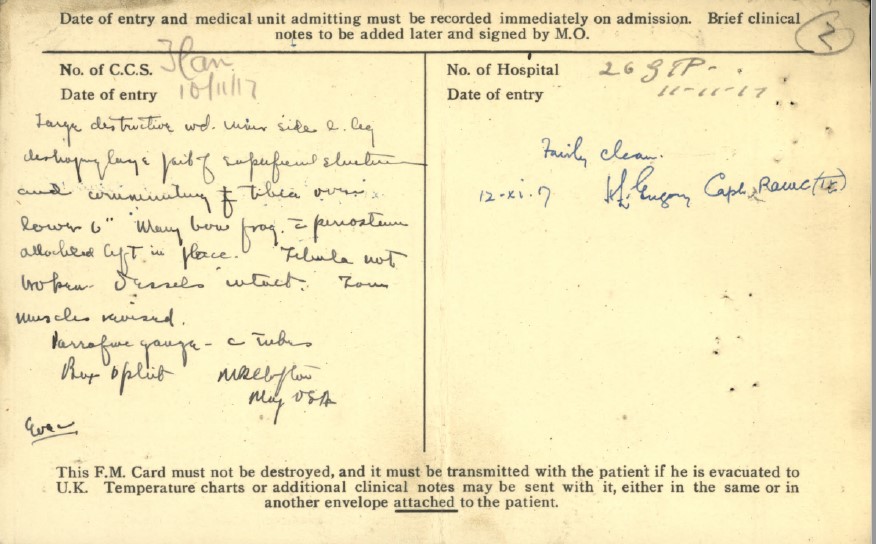 Date of entry and medical unit admitting must be recorded immediately on admission. Brief clinical
notes to be added later and signed by M.O.
2
No. of C.C.S.
Date of entry 10/11/17
Large destructive wd. inner side l. leg
destroying large part of superficial structures
and comminuting # tibia over
lower 6" Many bone frag. c̄ periosteum
attached left in place. Fibula not
broken. Vessels intact. Torn
muscles revised.
Parrafine gauze - c̄ tubes
Box splint
Maj USA
Evac
No. of Hospital 26
Date of entry 11-11-17
Fairly clean.
12-xi-17 Gregory Capt. RAMC
This F.M. Card must not be destroyed, and it must be transmitted with the patient if he is evacuated to
U.K. Temperature charts or additional clinical notes may be sent with it, either in the same or in
another envelope attached to the patient.